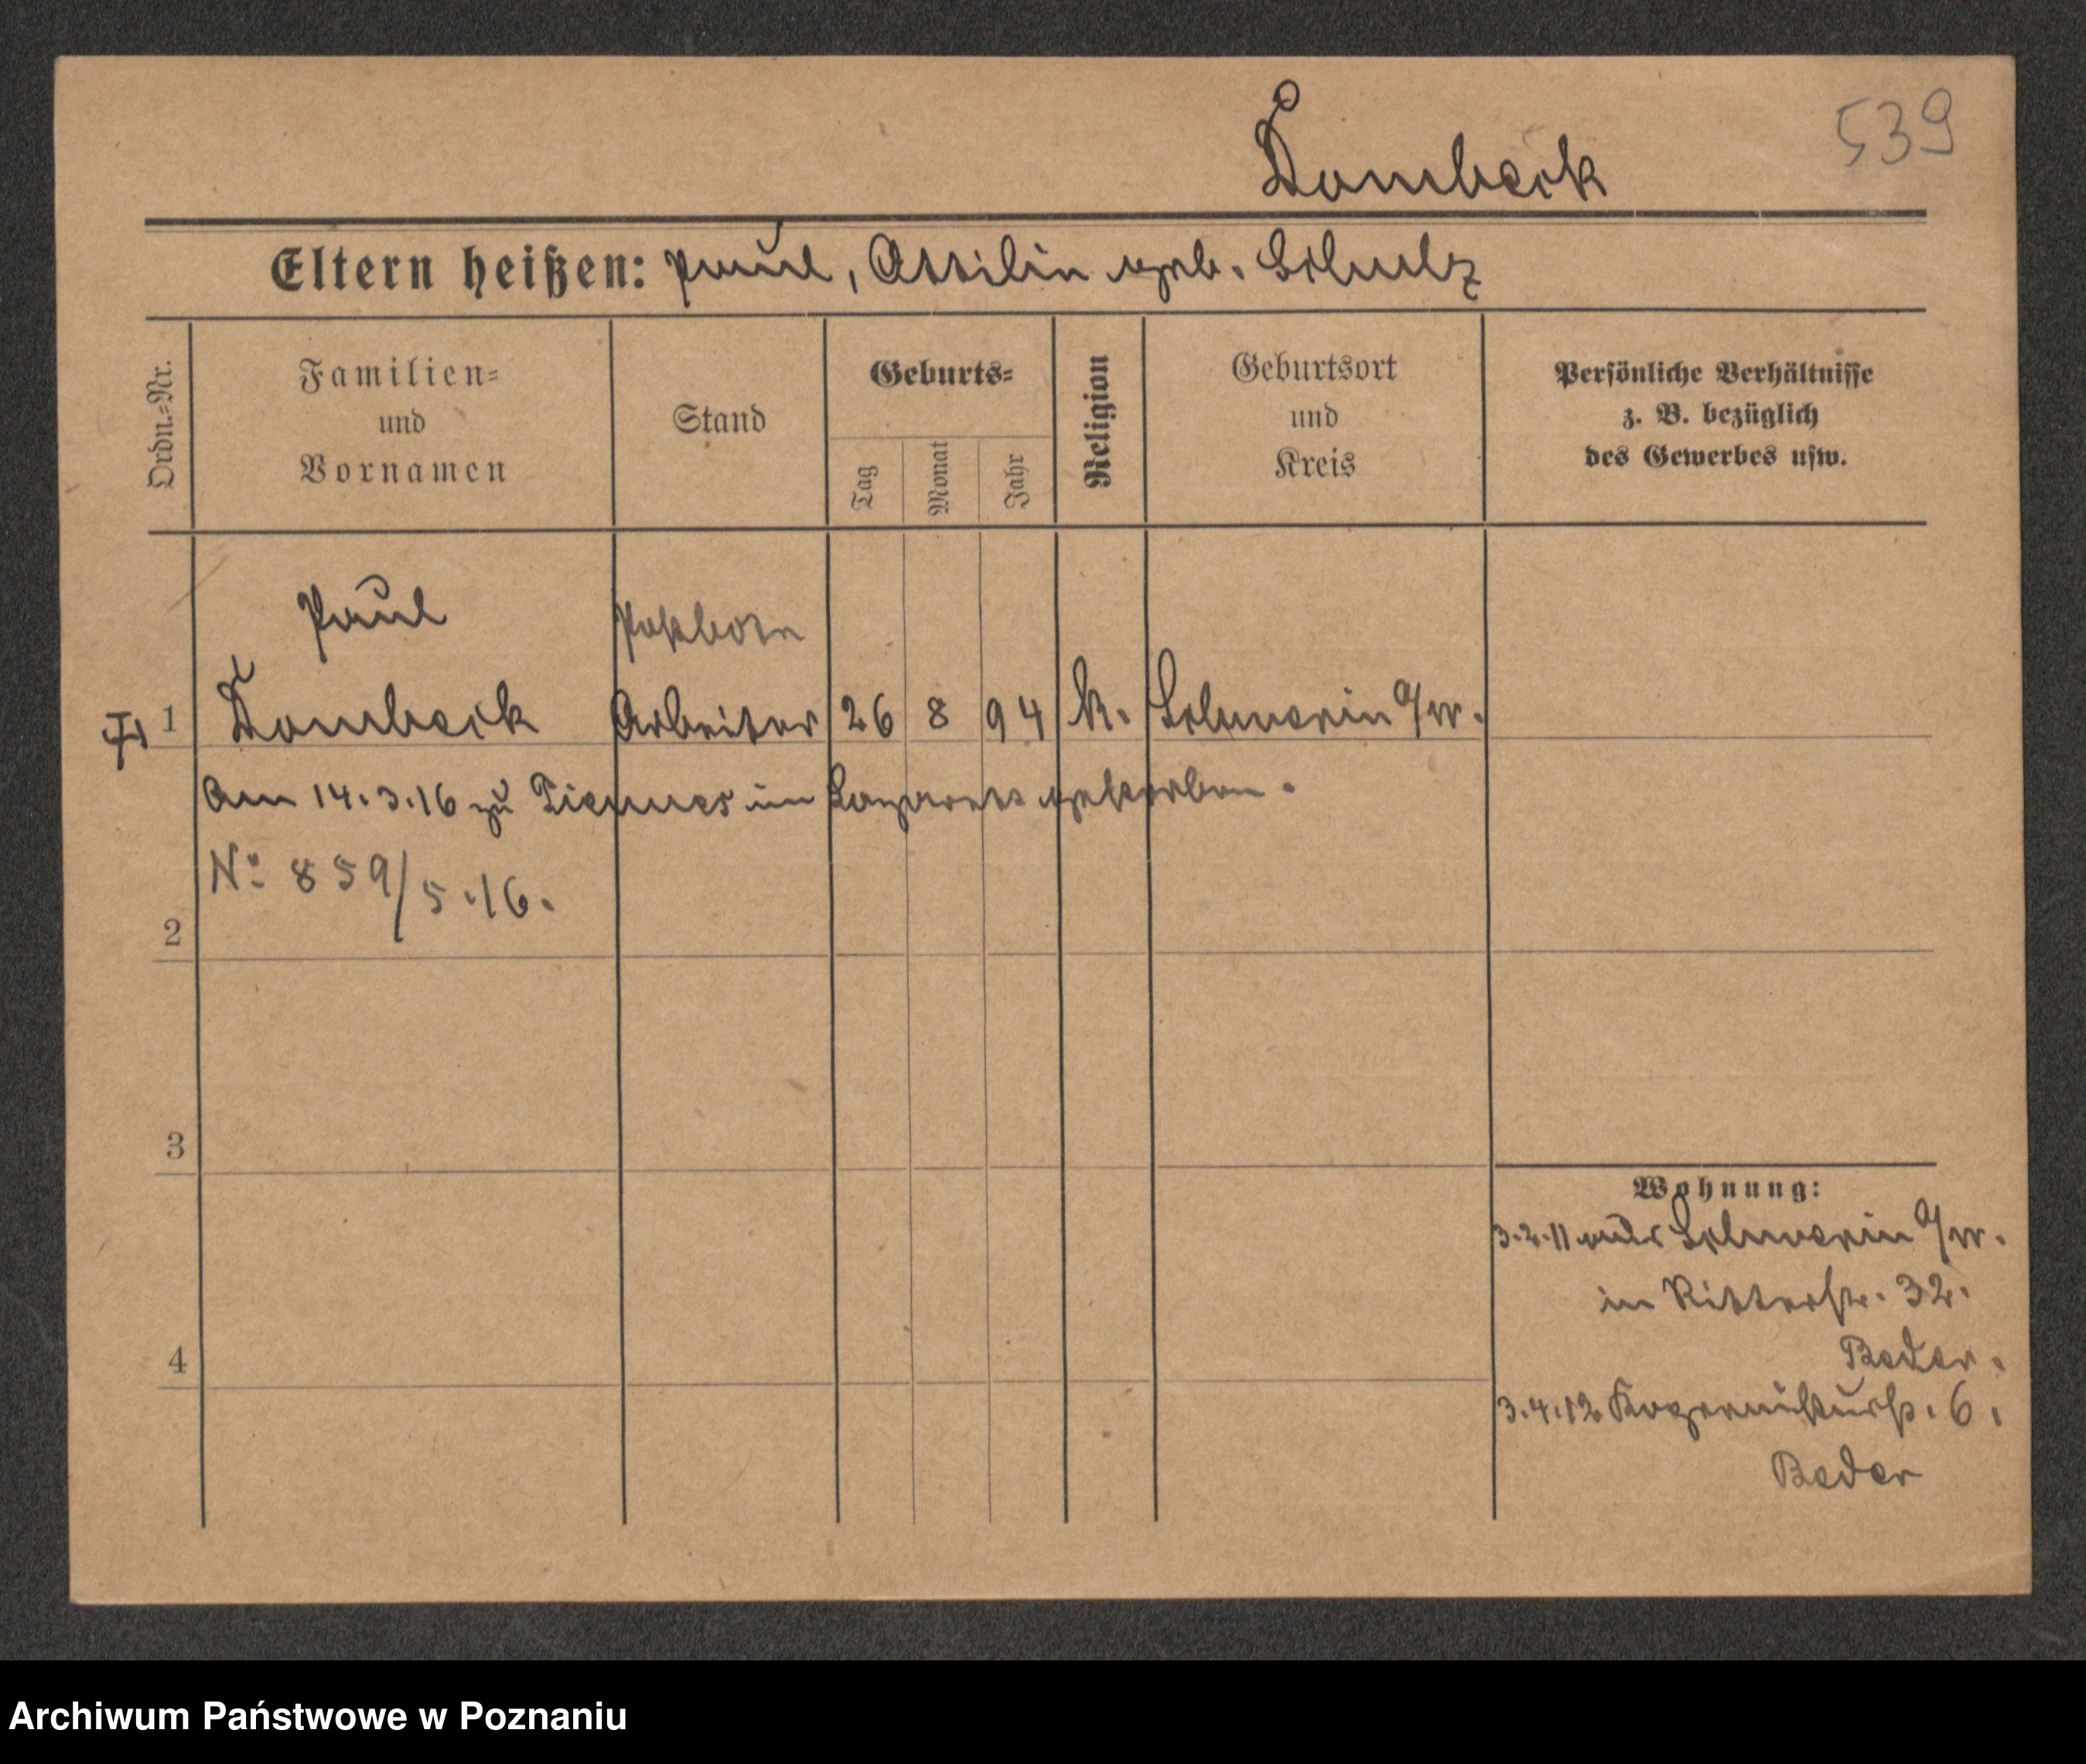 539
Dombeck
Eltern heißen: Paul, Ottilie geb. Schulz
Ordn.-Nr.
Familien-
und
Vornamen
Stand
Geburts-
Tag
Monat
Jahr
Religion
Geburtsort
und
Kreis
Persönliche Verhältnisse
z. B. bezüglich
des Gewerbes usw.
Paul Postbote
1 Dombeck Arbeiter 26 8 94 k. Schwerin a/W.
Am 14.3.16 zu im Lazarett gestorben.
No 859/5.16.
2
3
4
Wohnung:
3.2.11 aus Schwerin a/W.
in Ritterstr. 32.
Beder.
3.4.12 6.
Beder
Archiwum Państwowe w Poznaniu